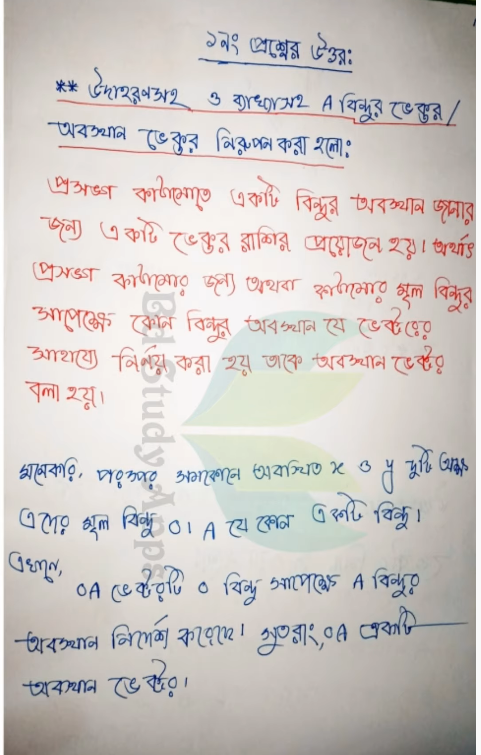 ১নং প্রশ্নের উত্তরঃ
** উদাহরণসহ ও ব্যাখ্যাসহ A বিন্দুর ভেক্টর /
অবস্থান ভেক্টর নিরুপন করা হলোঃ
প্রসঙ্গ কাঠামোতে একটি বিন্দুর অবস্থান জানার
জন্য একটি ভেক্টর রাশির প্রয়োজন হয়। অর্থাৎ
প্রসঙ্গ কাঠামোর জন্য অথবা কাঠামোর মূল বিন্দুর
সাপেক্ষে কোন বিন্দুর অবস্থান যে ভেক্টরের
সাহায্যে নির্নয় করা হয় তাকে অবস্থান ভেক্টর
বলা হয়।
মনেকরি, পরস্পর সমকোনে অবস্থিত x ও y দুটি অক্ষ
এদের মূল বিন্দু O। A যে কোন একটি বিন্দু।
এখানে,
OA ভেক্টরটি O বিন্দু সাপেক্ষে A বিন্দুর
অবস্থান নির্দেশ করেছে। সুতরাং, OA একটি
অবস্থান ভেক্টর।
Bd Study Apps